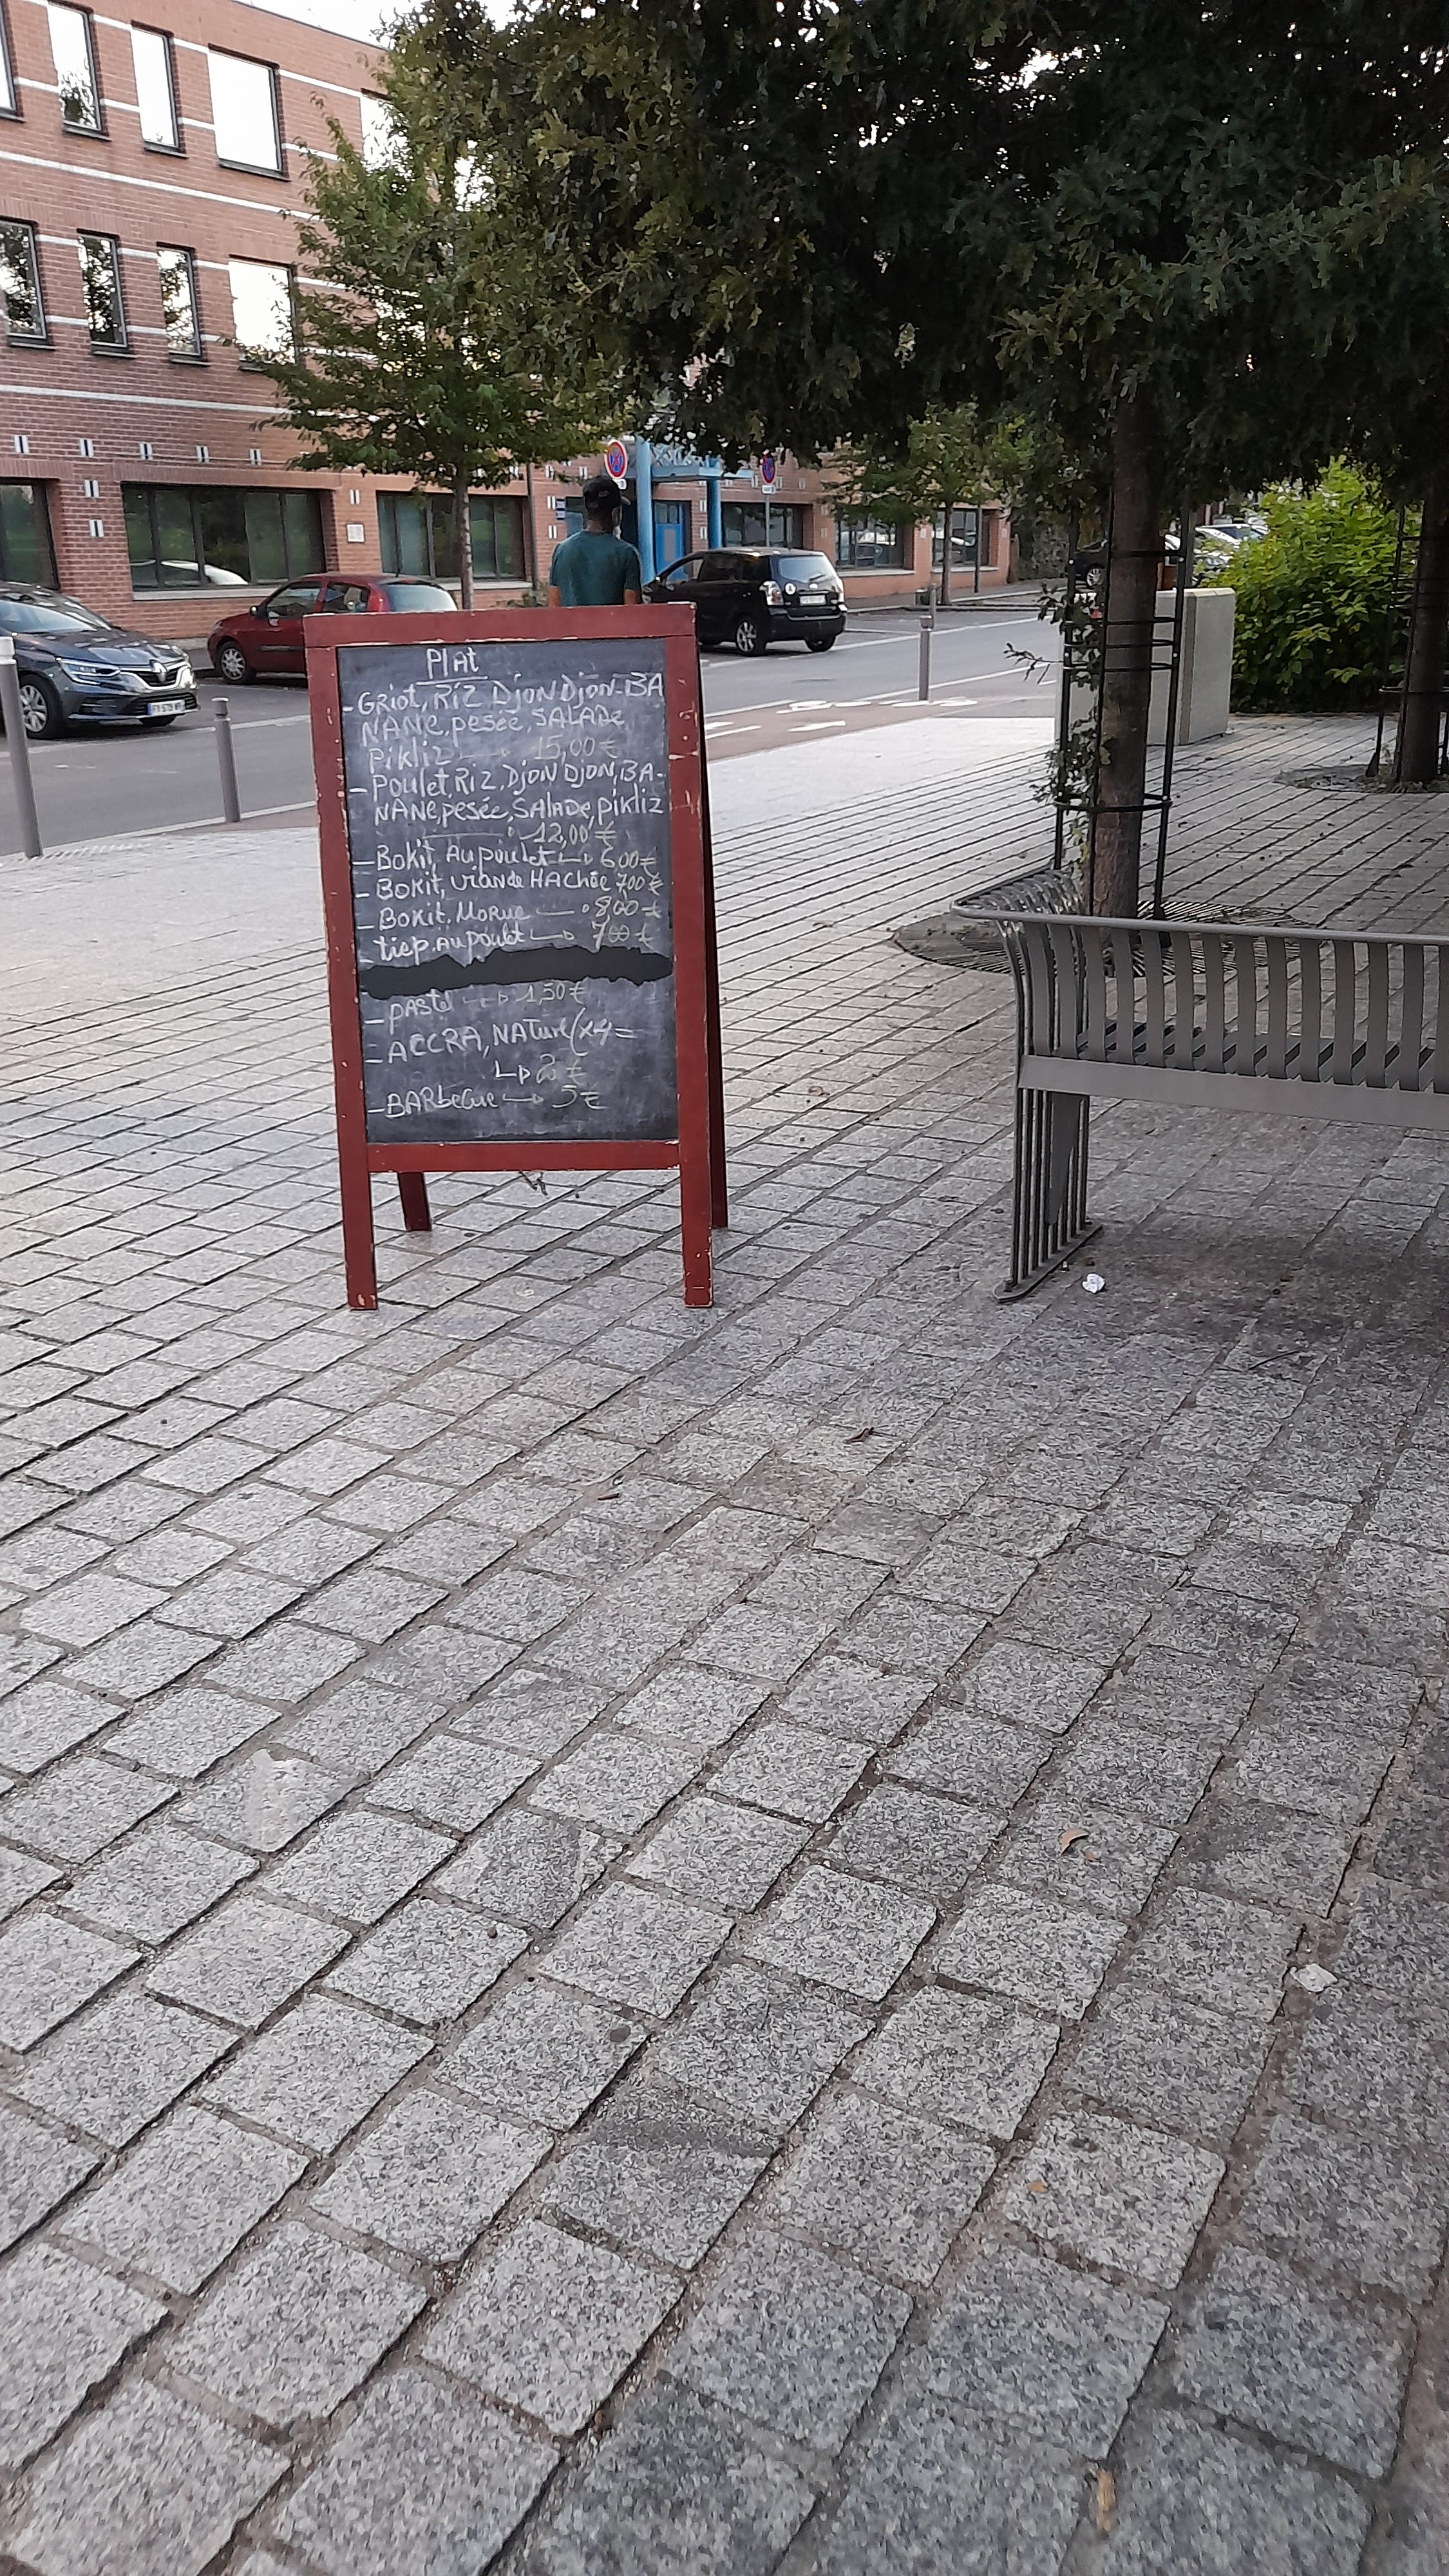 Plat
- Griot, Riz DjonDjon-BA
NANE, pesée, SALADe
Pikliz 15,00 €
- Poulet, Riz, Djon Djon, BA-
NANE, pesée, SALADe, pikliz
12,00 €
- Bokit, Au poulet → 600 €
- Bokit, viande HAChée 700 €
- Bokit, Morue → 800 €
- tiep. Au poulet → 700 €
- pastel → 1,50 €
- ACCRA, NAture (x4 =
↳ €
- BARbecue → 5 €